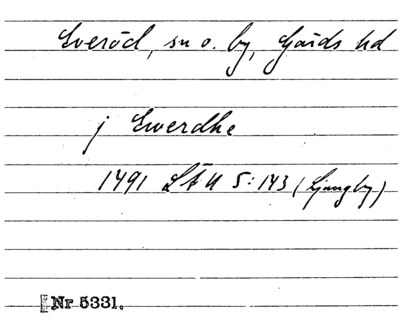 Everöd, sn o. by, Gärds hd
j Ewerdhe
1491 LÅU 5:143 (Ljungby)
Nr 5331.